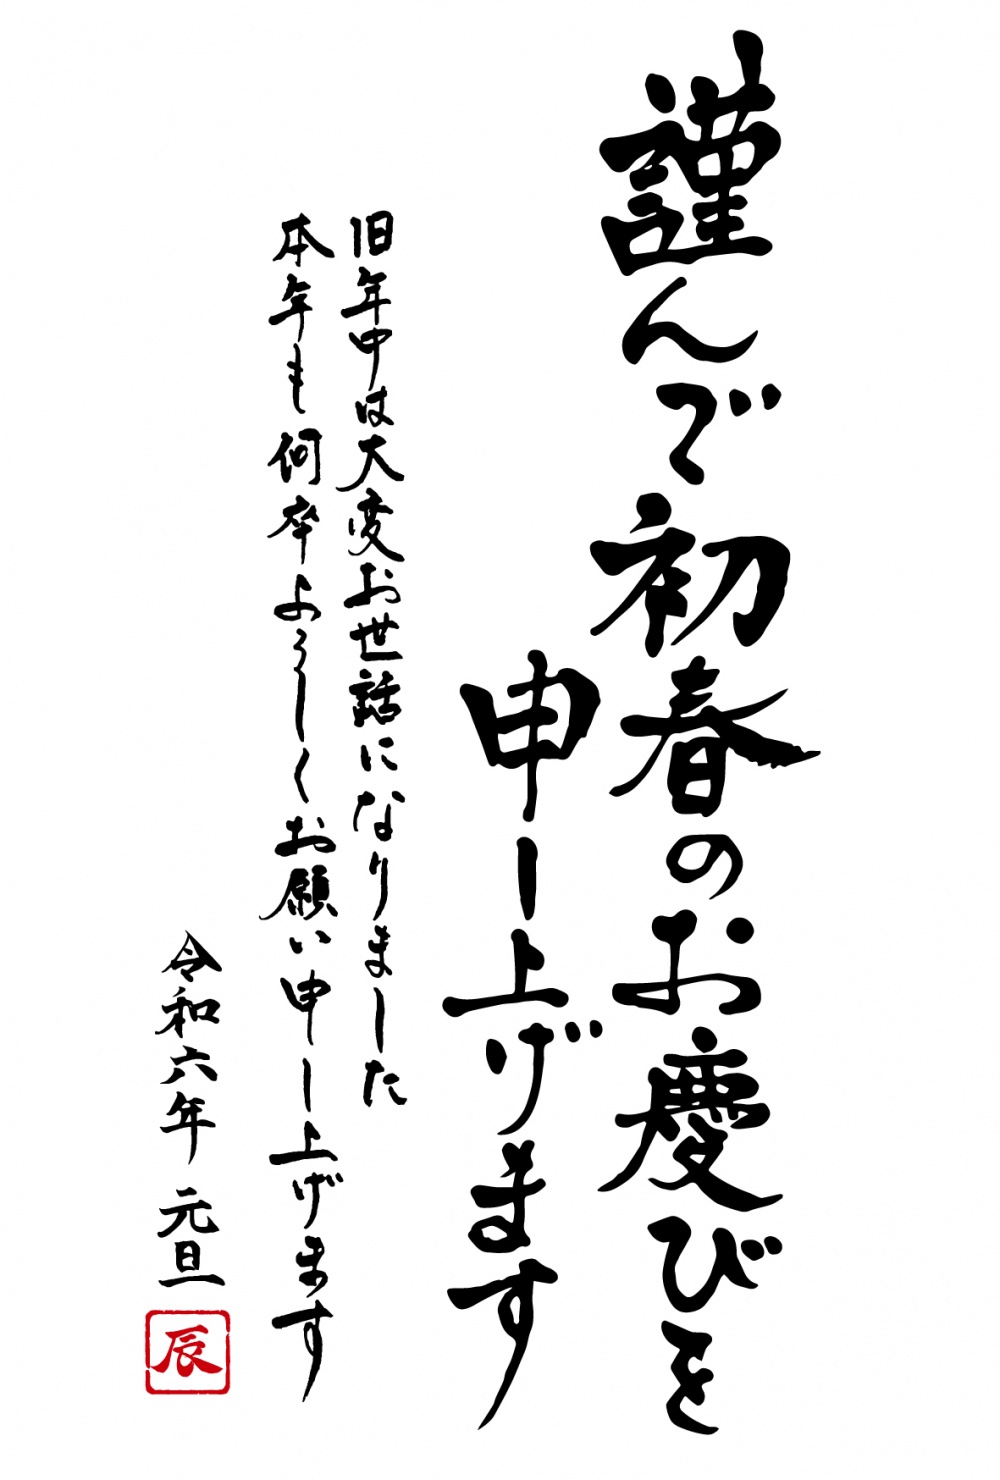 謹んで初春のお慶びを
申し上げます
旧年中は大変お世話になりました
本年も何卒よろしくお願い申し上げます
令和六年 元旦
辰